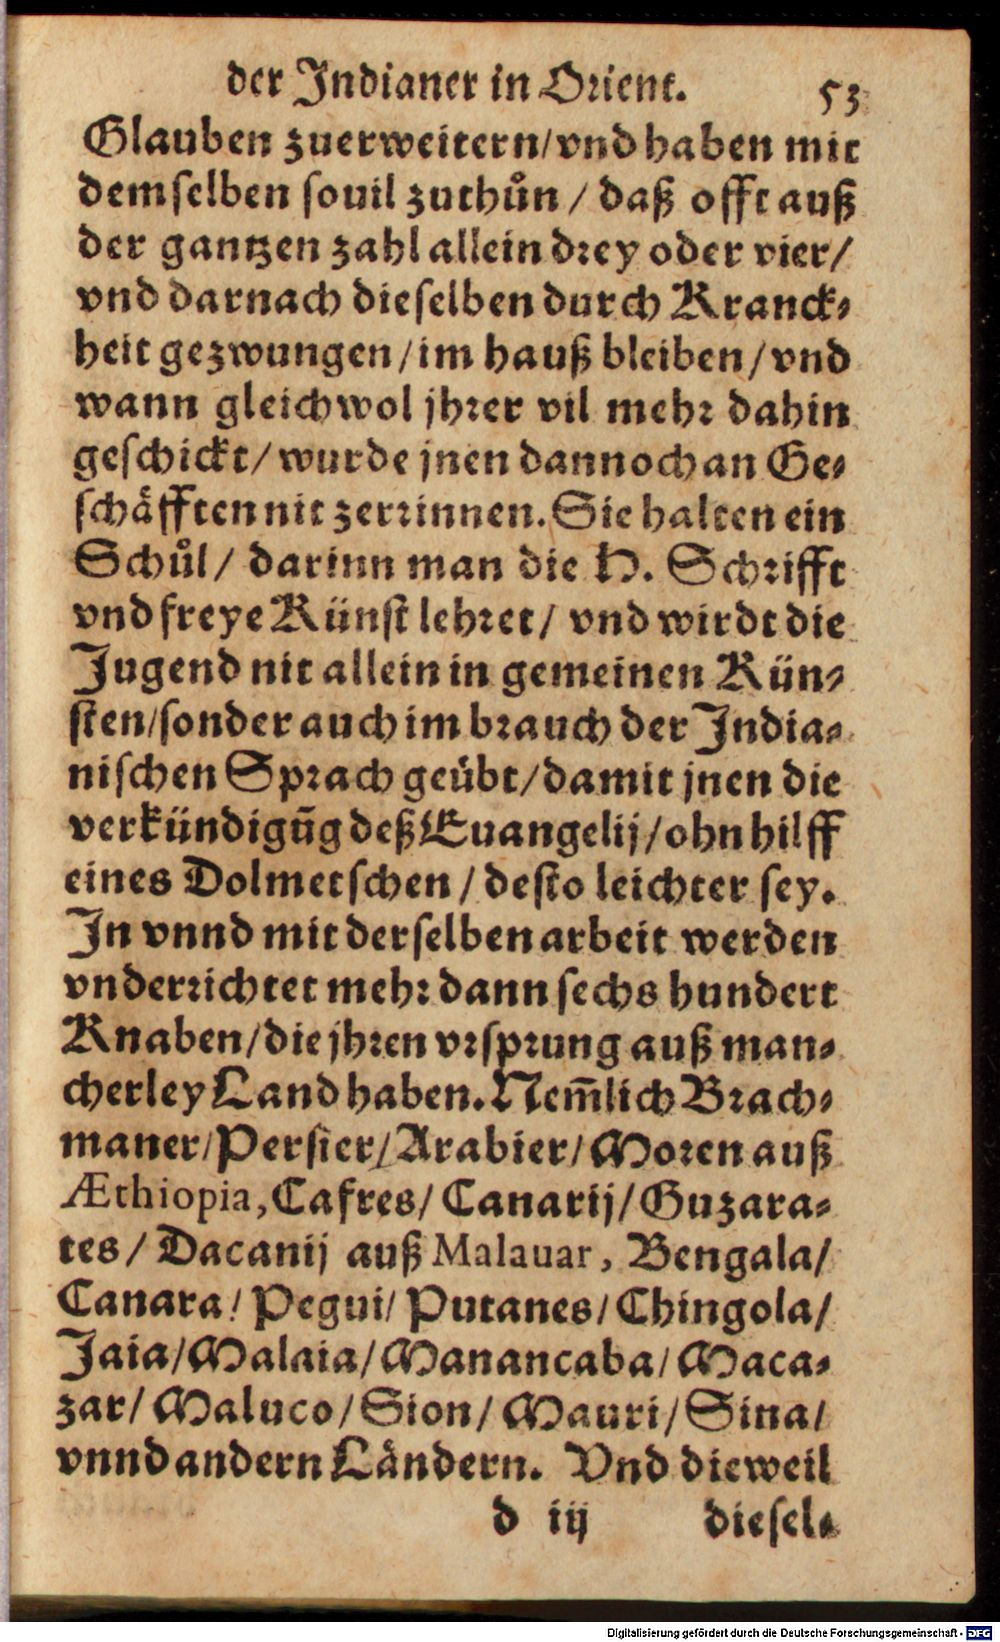 der Indianer in Orient. 53
Glauben zuerweitern/vnd haben mit
demselben souil zuthůn / daß offt auß
der gantzen zahl allein drey oder vier/
vnd darnach dieselben durch Kranck-
heit gezwungen/im hauß bleiben/vnd
wann gleichwol jhrer vil mehr dahin
geschickt/ wurde jnen dannoch an Ge-
schäfften nit zerrinnen. Sie halten ein
Schůl/ darinn man die H. Schrifft
vnd freye Künst lehret/ vnd wirdt die
Jugend nit allein in gemeinen Kün-
sten/sonder auch im brauch der India-
nischen Sprach geübt/damit jnen die
verkündigũg deß Euangelij/ohn hilff
eines Dolmetschen / desto leichter sey.
In vnnd mit derselben arbeit werden
vnderrichtet mehr dann sechs hundert
Knaben/die jhren vrsprung auß man-
cherley Land haben. Nem̃lich Brach-
maner/Persier/Arabier/Moren auß
Æthiopia, Cafres/ Canarij/Guzara-
tes/ Dacanij auß Malauar, Bengala/
Canara/ Pegui/ Putanes/Chingola/
Jaia/Malaia/Manancaba/Maca-
zar/ Maluco/Sion/ Mauri/Sina/
vnnd andern Ländern. Vnd dieweil
d iij diesel-
Digitalisierung gefördert durch die Deutsche Forschungsgemeinschaft - DFG